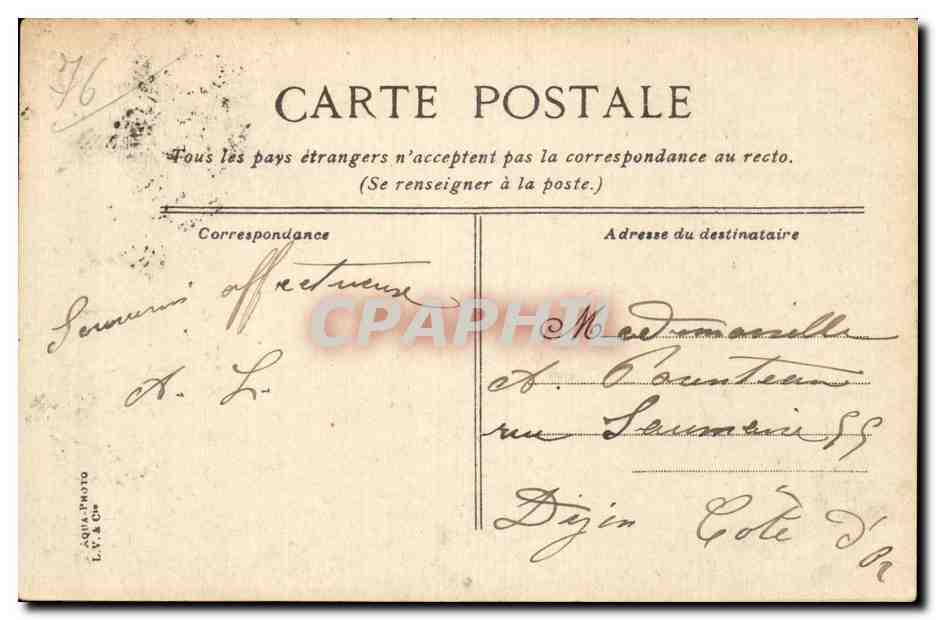 76
CARTE POSTALE
Tous les pays étrangers n'acceptent pas la correspondance au recto.
(Se renseigner à la poste.)
Correspondance
Adresse du destinataire
Souvenir affectueuse
A. L.
CPAPHIL
Mademoiselle
A. Pointeau
rue Saumaise 55
Dijon Côte d'Or
AQUA-PHOTO
L.V. & Cie